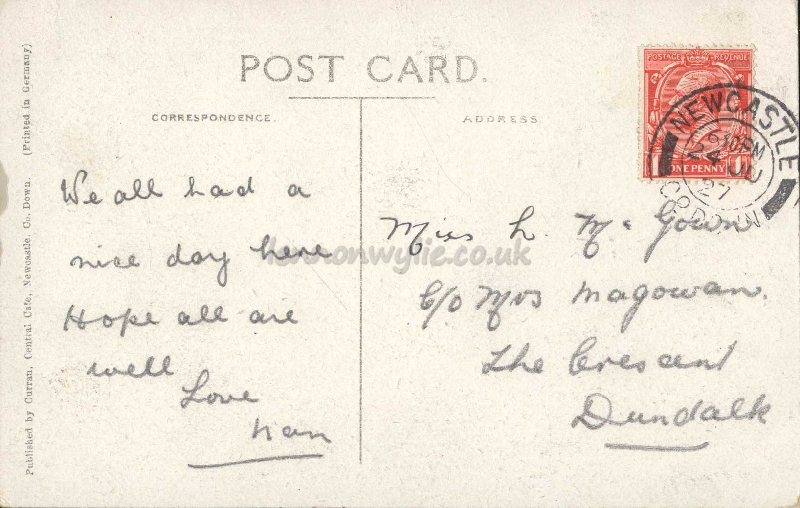 POST CARD.
CORRESPONDENCE.
ADDRESS.
We all had a
nice day here
Hope all are
well
Love
Nan
Miss L. Mc Gown
C/o Mrs Magowan.
The Crescent
Dundalk
POSTAGE REVENUE
ONE PENNY
NEWCASTLE
24 JU
27
CO. DOWN
Published by Curran, Central Cafe, Newcastle, Co. Down. (Printed in Germany)
lennonwylie.co.uk